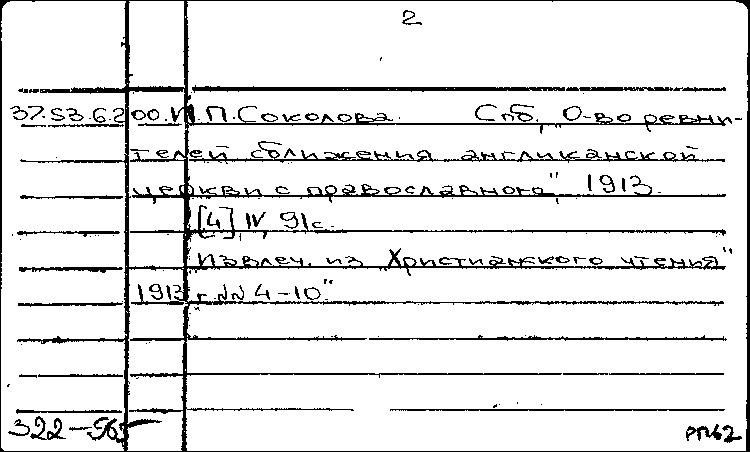 2
37.53.6.200. И.П. Соколова. Спб, "О-во ревни-
телей сближения англиканской
церкви с православною", 1913.
[4] IV, 91с.
Извлеч. из "Христианского чтения"
1913 г. №№ 4-10"
322-565
РПБ2